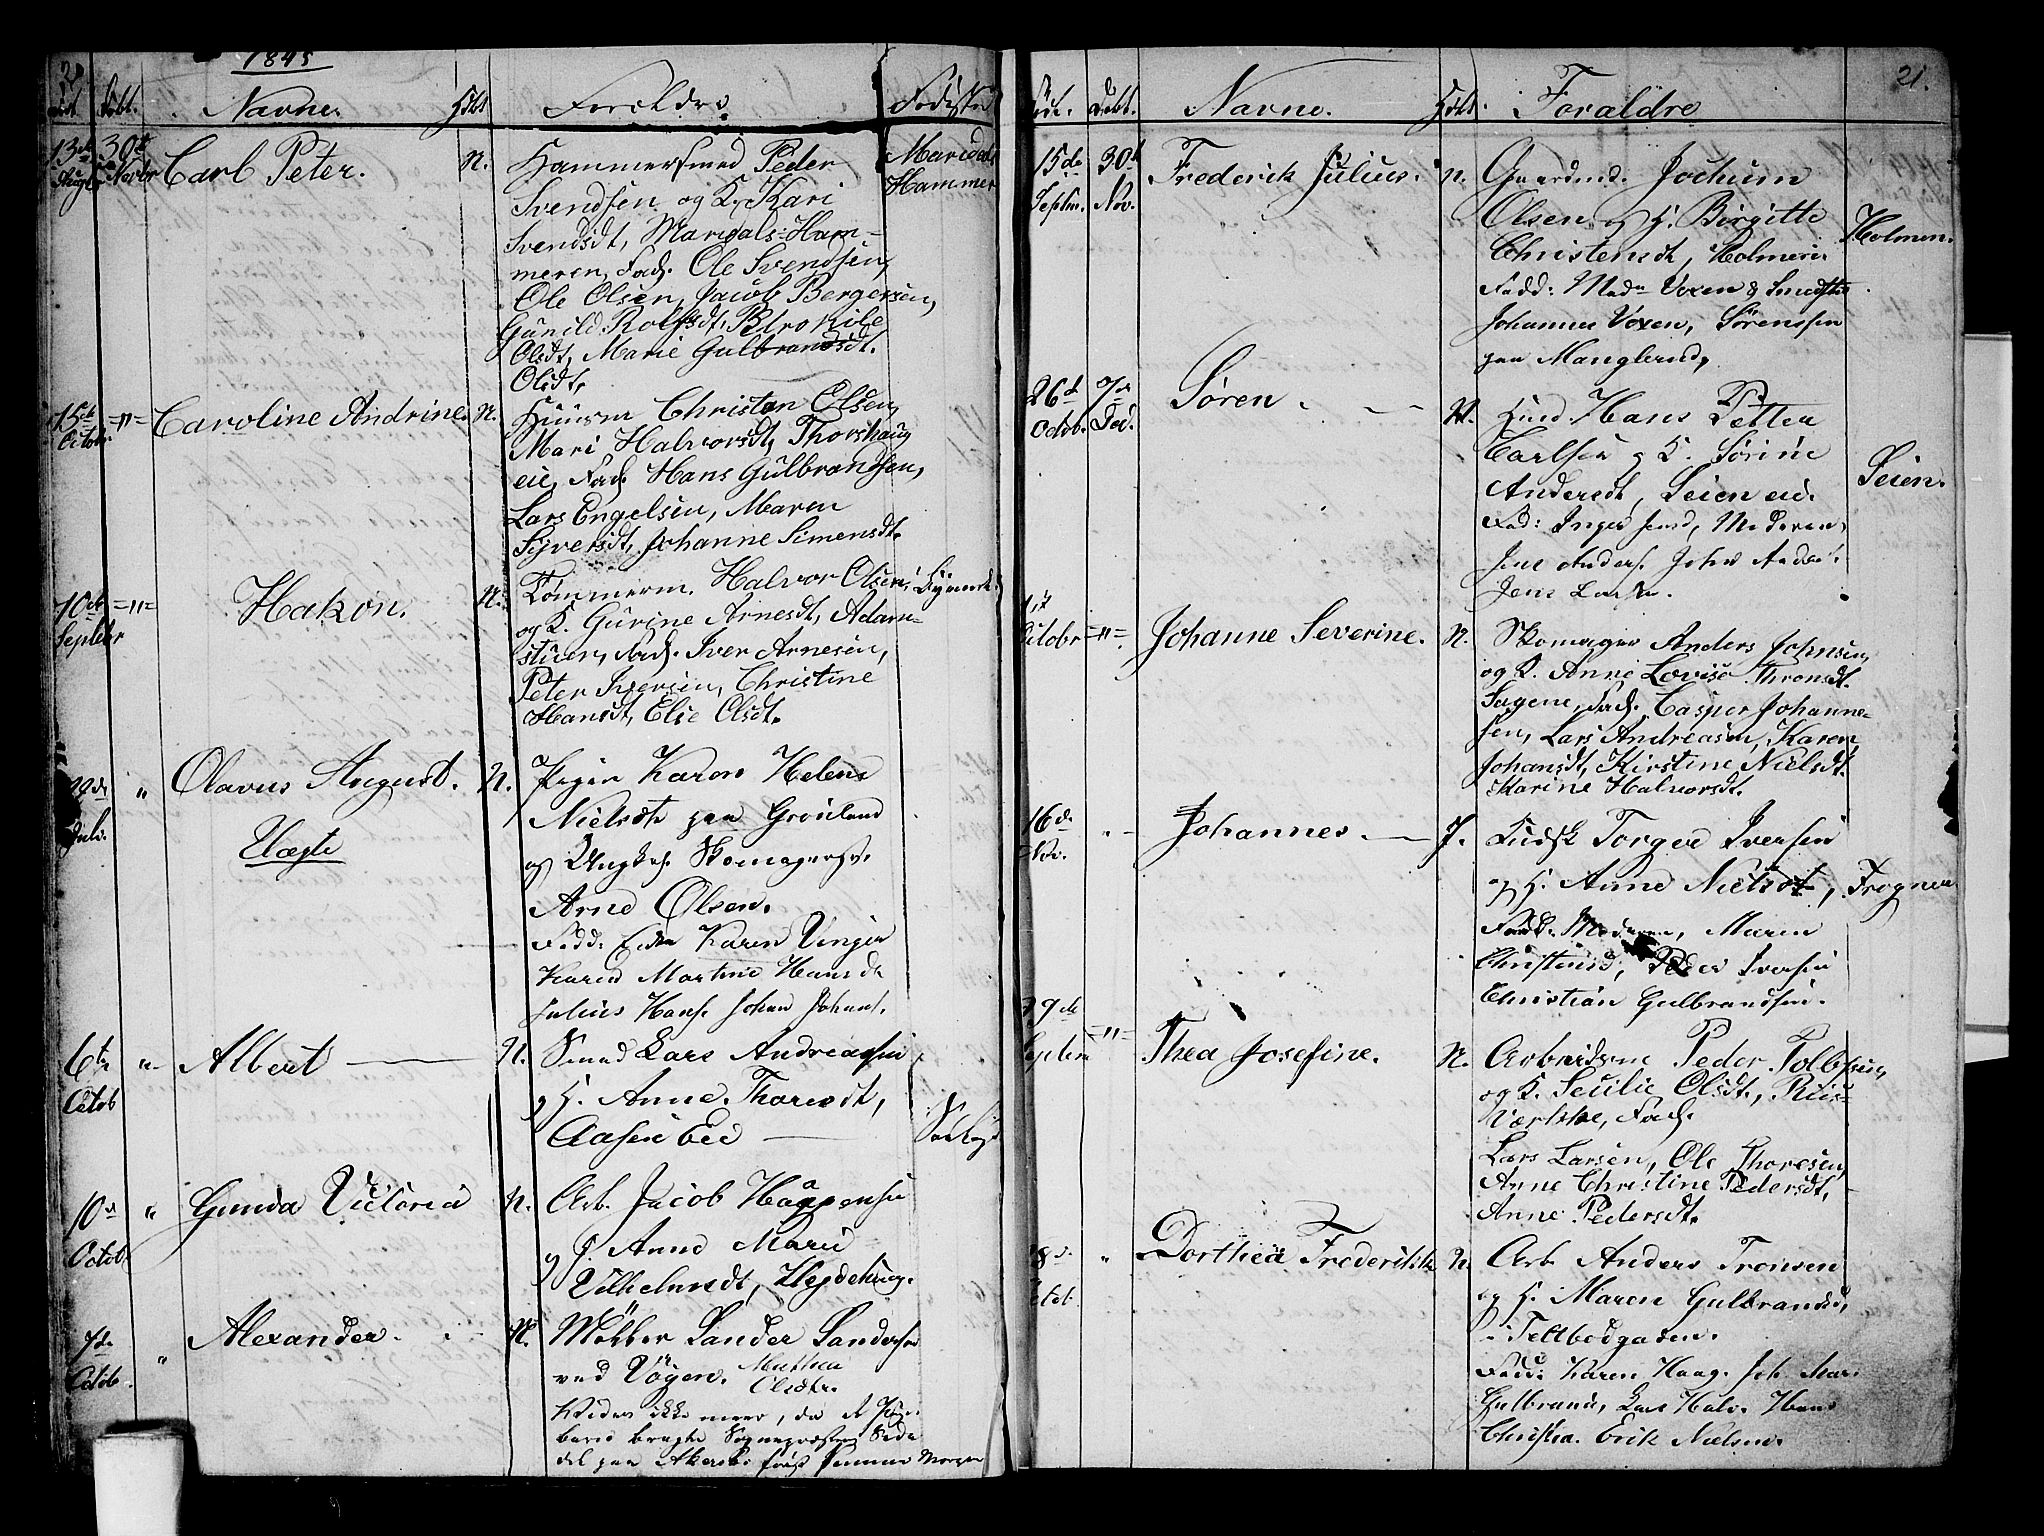 1845
Født. Døbt. Navne. Hdbt Foreldre. Fødested
13de August 30te Novbr Carl Peter. N. Hammersmed Peder
Svendsen og K. Kari
Svendsdt, Maridals-Ham-
meren, Fad. Ole Svendsen,
Ole Olsen, Jacob Bergersen,
Gunild Rolfsdt,
Olsdt, Marie Gulbrandsdt.
Olsdt,
Maridals
Hammer
15de Octobr =„= Caroline Andrine. N. Huusm Christen Olsen,
Mari Halvorsdt, Thorshaug
eie, Fad. Hans Gulbrandsen,
Lars Engelsen, Maren
Syversdt, Johanne Simensdt.
10de Septbr =„= Hakon. N. Tømmerm. Halvor Olsen,
og K. Gurine Arnesdt, Adam-
stuen, Fad. Iver Arnesen,
Peter Iversen, Christine
Hansdt, Elise Olsdt.
Juli. „ Olavus August. N. Pigen Karen Helene
Uægte
Nielsdt paa Grønland
og Ungk. Skomagersv.
Arne Olsen.
Fadd: Karen Unger
Karen Martine Hansd
Julius Hans. Johan Johans.
6te Octob „ Albert N. Smed Lars Andreasen
og H. Anne Thoresdt,
Aasen Eie
10de Octob „ Gunda Victoria N. Arb. Jacob Haagensen
og H. Anne Marie
Vilhelmsdt, Heydehaug.
7de Octob. „ Alexander. N. Møller Sander Sandersen
ved Vøyen. Mathea
Olsdtr.
Vides ikke mere, da
bragte Sognepræsten
paa Aker

21.
Født. Døbt. Navne. Hdbt. Foraldre
15de Septm. 30te Nov. Frederik Julius. N. Gaardmd. Jochum
Olsen og H. Birgitte
Christensdt, Holmen.
Fadd: Mad. Voxen &
Johannes Voxen, Sørensen
paa Manglerud,
Holmen.
26de Octob. 7de Dec. Søren N. Husmd Hans Petter
Carlsen og K. Sørine
Andersdt, Seien eie.
Fad: Inger Jensd, Moderen,
Jens Anders. John Anders.
Jens Lars.
Seien.
Octobr =„= Johanne Severine. N. Skomager Anders Johnsen,
og K. Anne Lovise Thronsdt.
Sagene, Fad. Casper Johanne-
sen, Lars Andreasen, Karen
Johansdt, Kirstine Nielsdt.
Karine Halvorsdt.
16de Nov. „ Johannes. J. Indsk Torger Iversen
og H. Anne Nielsdt,
Fadd. Moderen, Maren
Christensd, Peder Iversen
Christian Gulbrandsen.
Frogner
29de Septem =„= Thea Josefine. N. Arbeidsm Peder Tollefsen,
og K. Secilie Olsdt., Riis-
Værkke, Fad.
Lars Larsen, Ole Thoresen,
Anne Christine Pedersdt,
Anne Pedersdt.
8de „ Dorthea Frederikke N. Arb Anders Tronsen
og H. Maren Gulbrandsd,
i Teltbodgaden.
Fad: Karen Haag. Joh Mar.
Gulbrand, Lars Halv. Hans
Christia. Erik Nielsen.